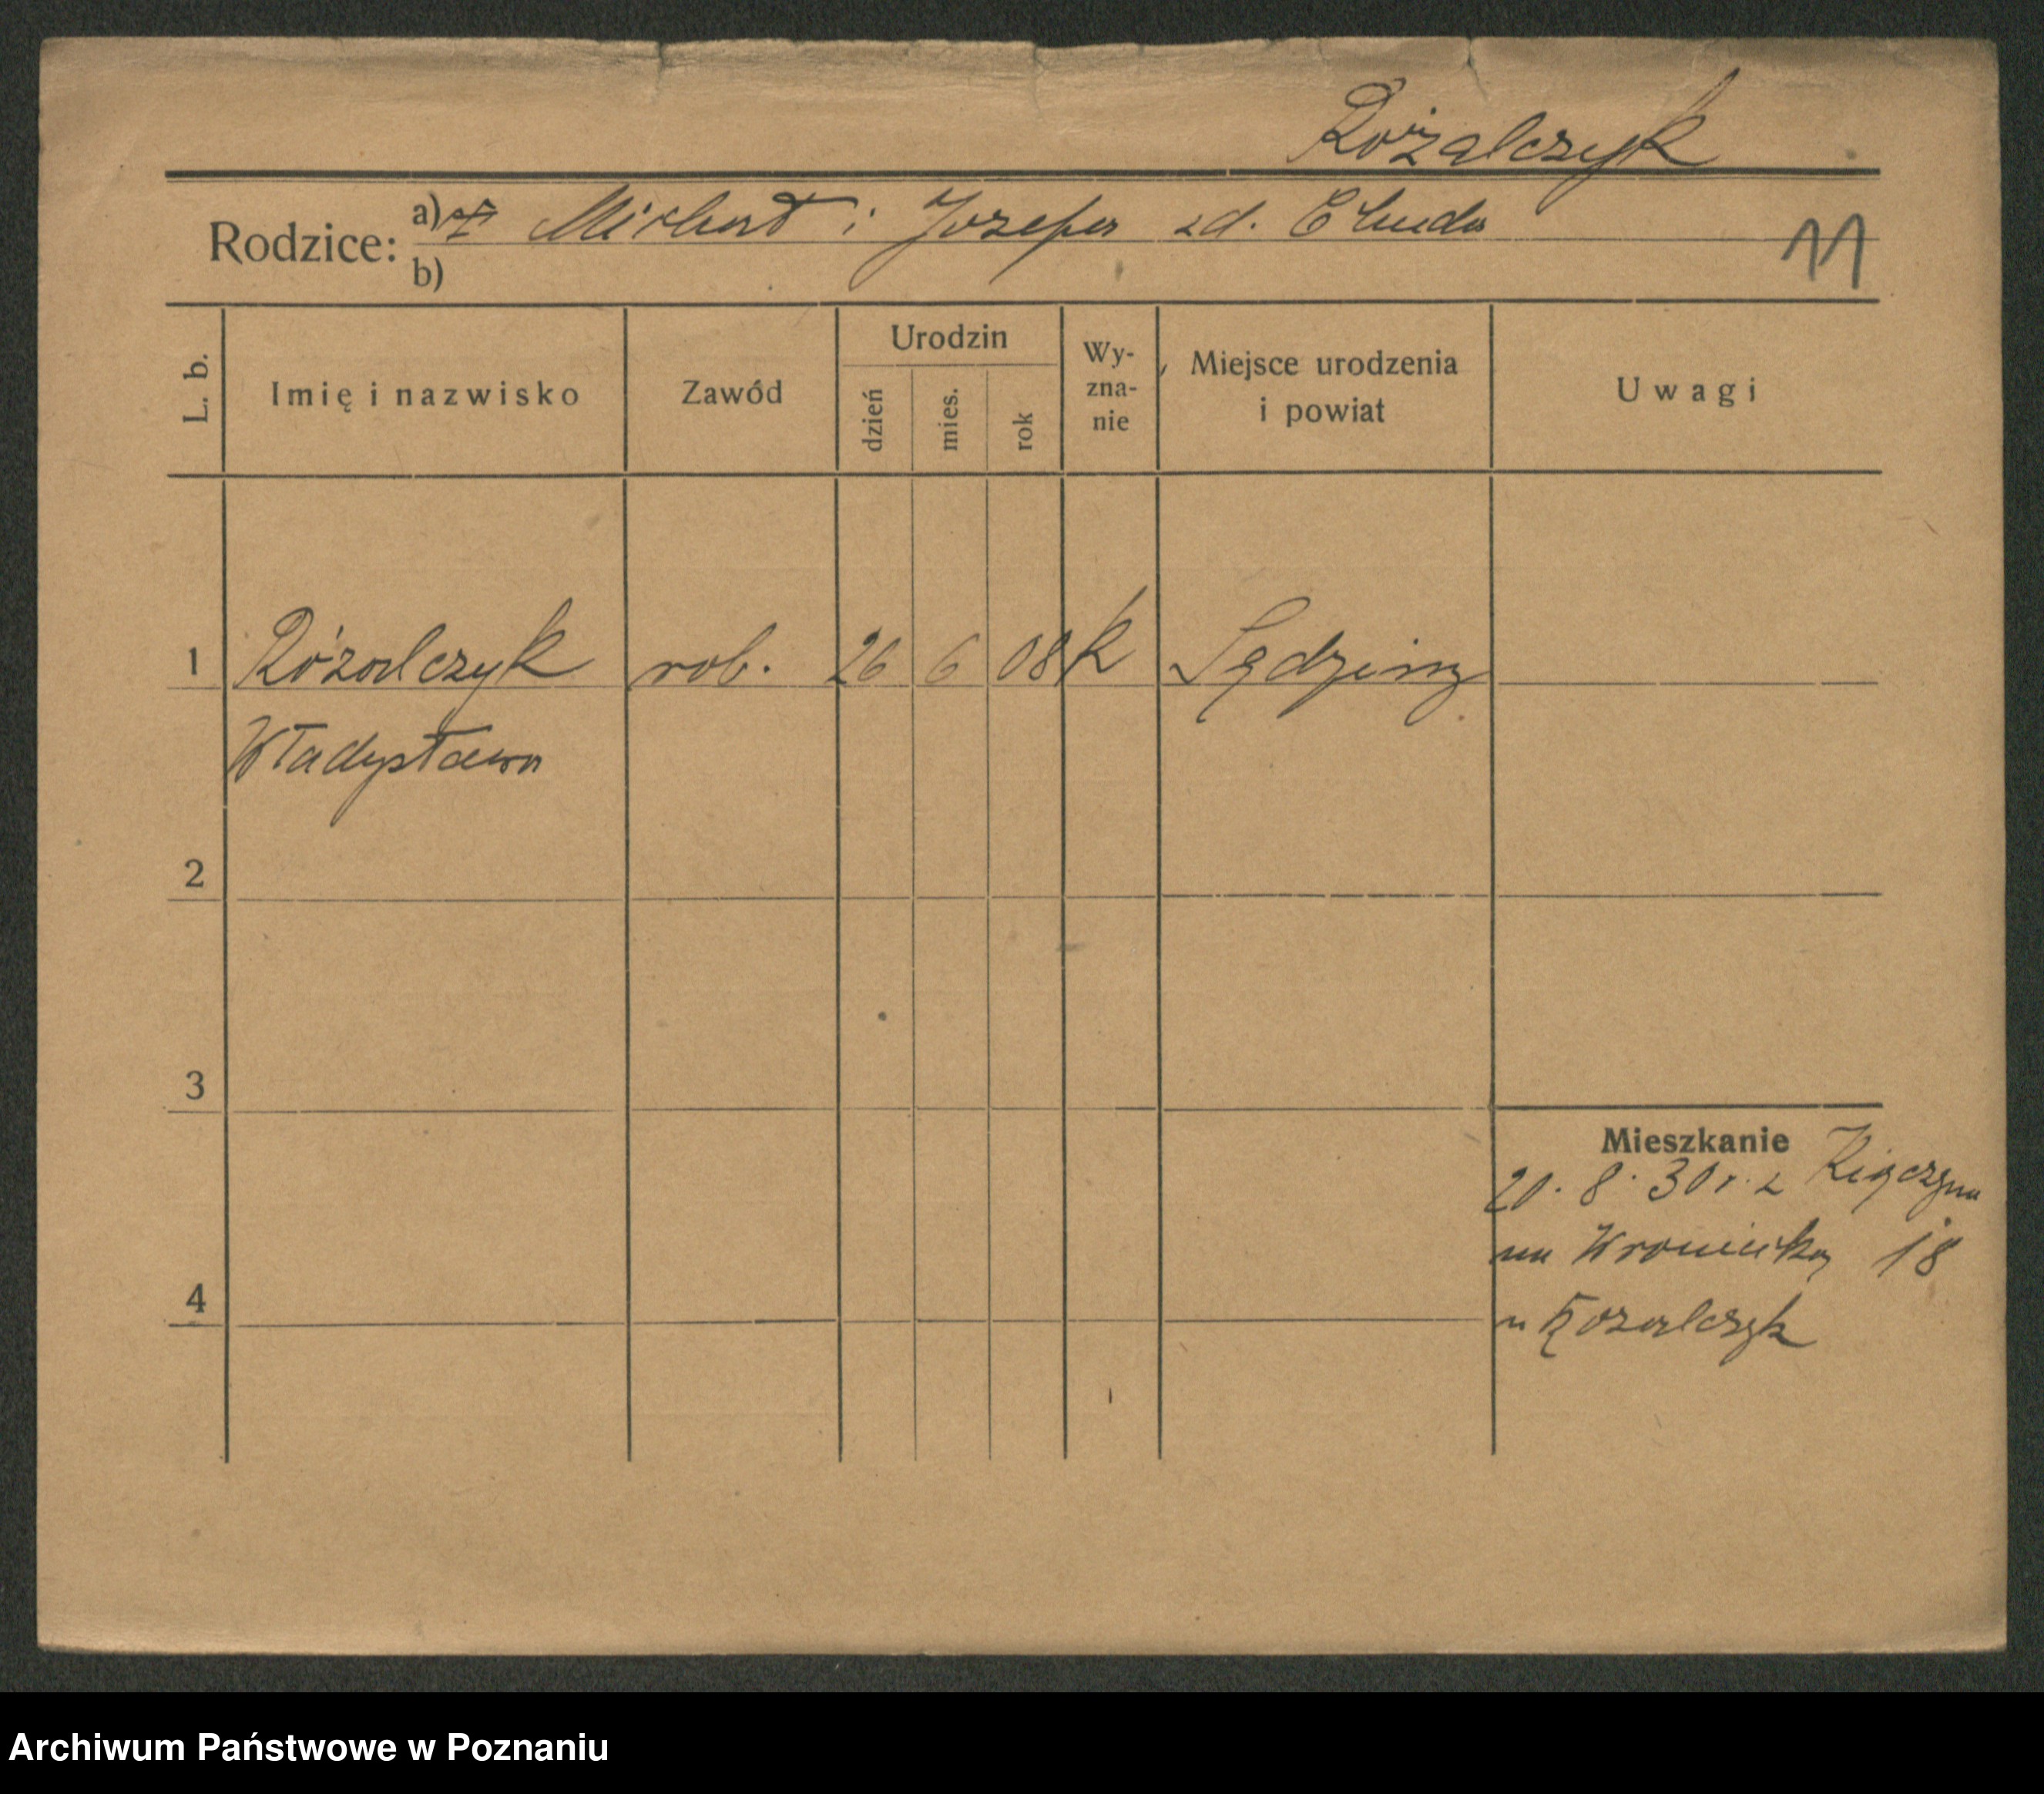 Różalczyk
Rodzice: a) Michał i Józefa zd. Chuda
b)
11
L. b.
Imię i nazwisko
Zawód
Urodzin
dzień
mies.
rok
Wy-
zna-
nie
Miejsce urodzenia
i powiat
Uwagi
1 Rózalczyk rob. 26 6 08 k Sędziny
Władysława
2
3
Mieszkanie
20. 8. 30 r. z Kiączyna
na Wroniecką 18
4
u Rozalczyk
Archiwum Państwowe w Poznaniu